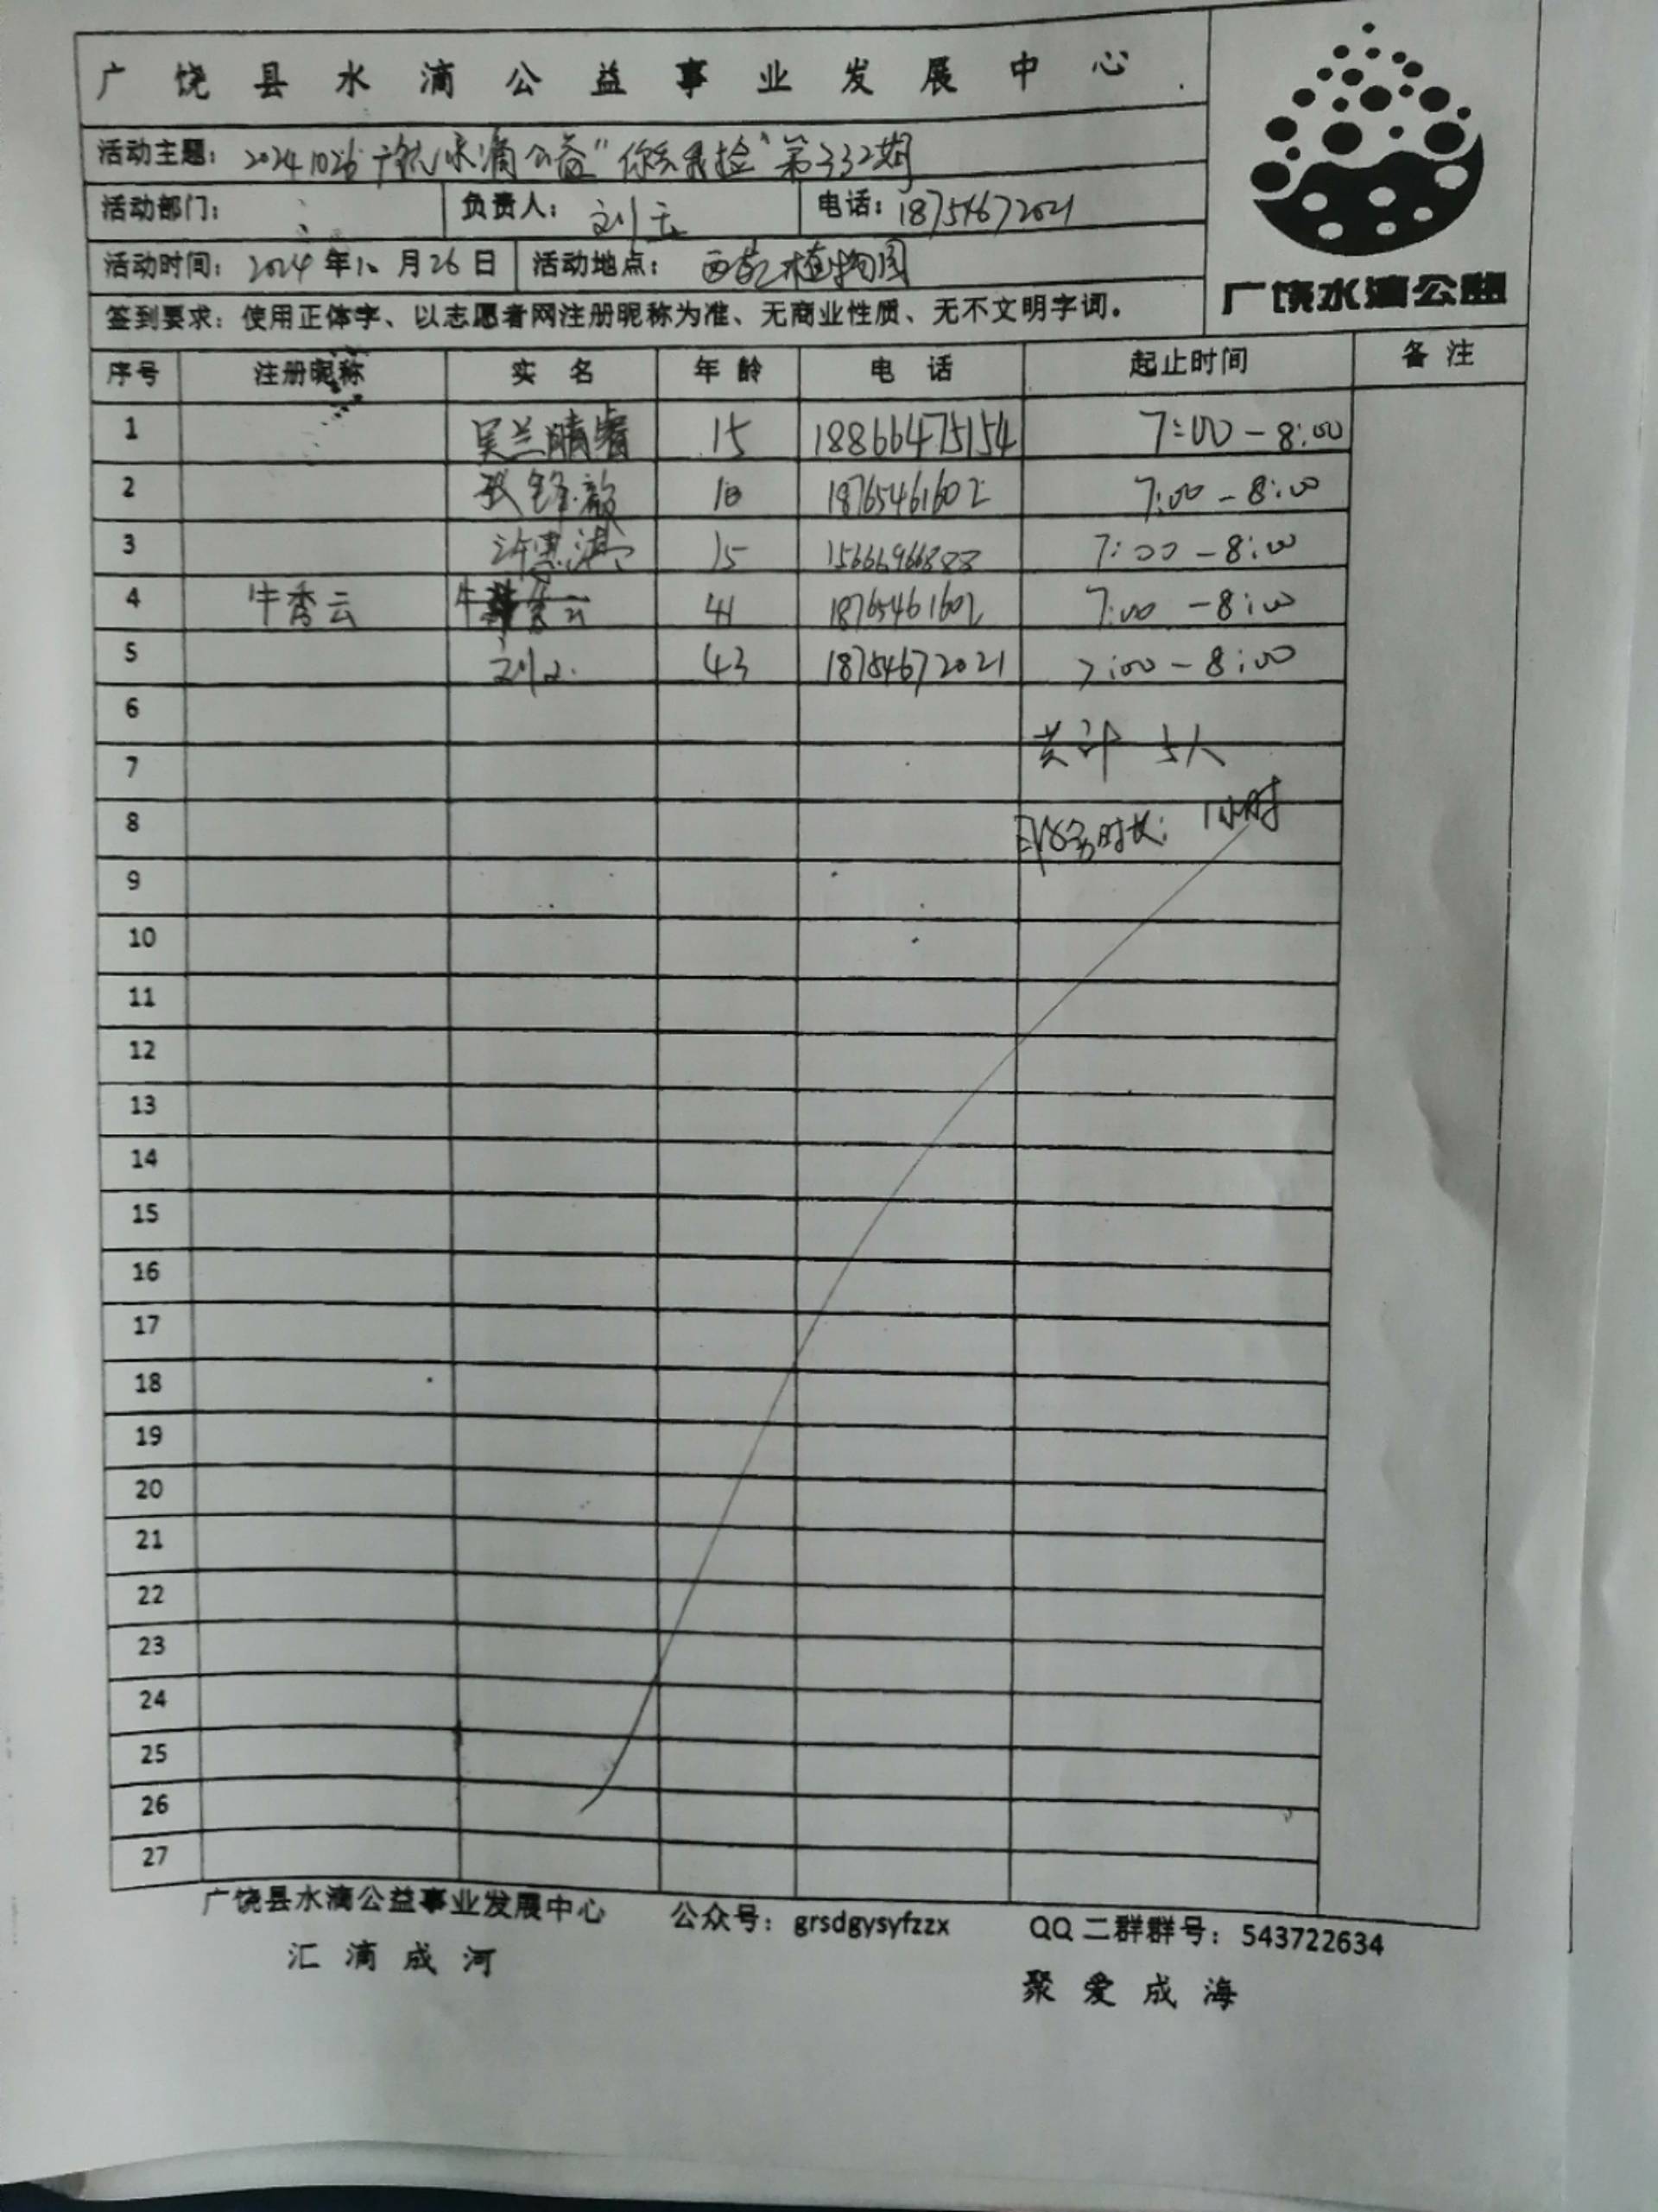 广饶县水滴公益事业发展中心
活动主题：20241026广饶水滴公益"你丢我捡"第332期
活动部门： 负责人：刘云 电话：18754672021
活动时间：2024年10月26日 活动地点：西苑植物园
签到要求：使用正体字、以志愿者网注册昵称为准、无商业性质、无不文明字词。
广饶水滴公益
序号 注册昵称 实名 年龄 电话 起止时间 备注
1 吴兰晴睿 15 18866475154 7:00-8:00
2 18765461602 7:00-8:00
3 15 15666966888 7:00-8:00
4 牛秀云 41 18765461602 7:00-8:00
5 43 18754672021 7:00-8:00
6
共计 5人
7
8 服务时长：1小时
9
10
11
12
13
14
15
16
17
18
19
20
21
22
23
24
25
26
27
广饶县水滴公益事业发展中心 公众号：grsdgysyfzzx QQ二群群号：543722634
汇滴成河 聚爱成海